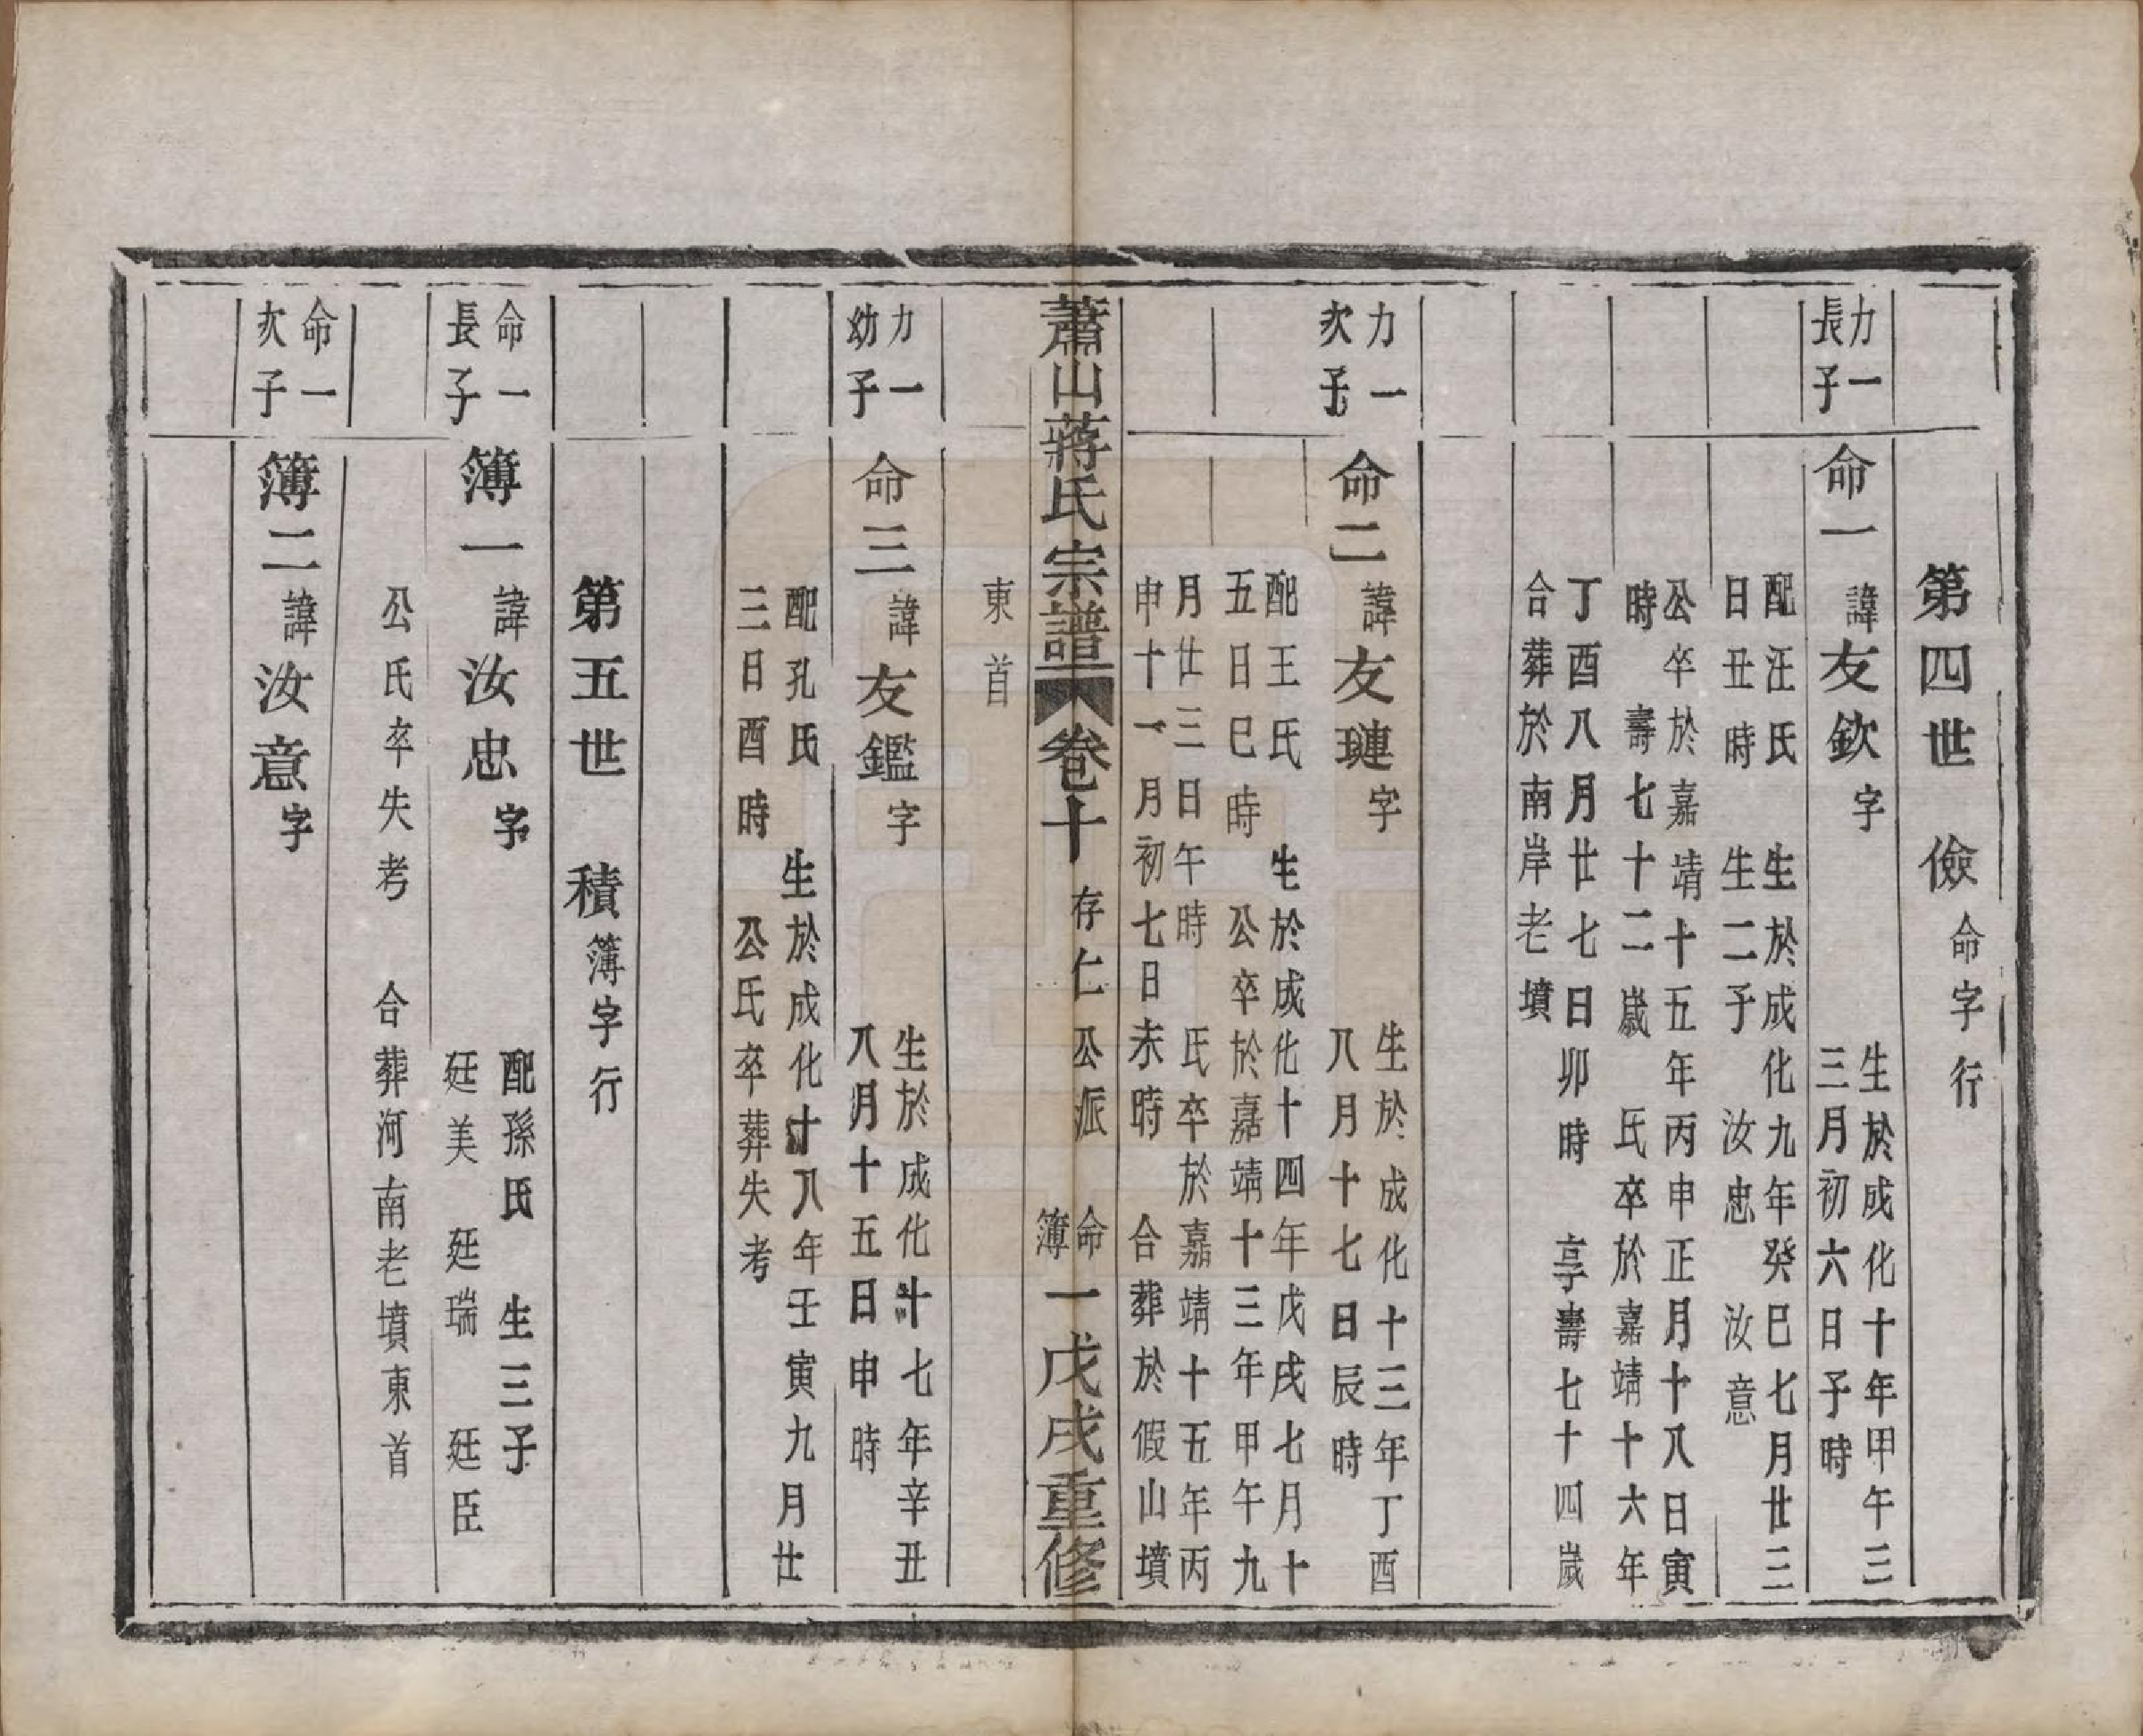 第四世　儉命字行
力一
長子
命一諱友欽字
生於成化十年甲午三
三月初六日子時
配汪氏　生於成化九年癸巳七月廿三
日丑時　生二子　汝忠　汝意
公卒於嘉靖十五年丙申正月十八日寅
時　壽七十二歲　氏卒於嘉靖十六年
丁酉八月廿七日卯時　享壽七十四歲
合葬於南岸老墳
力一
次子
命二諱友璉字
生於成化十三年丁酉
八月十七日辰時
配王氏　生於成化十四年戊戌七月十
五日巳時　公卒於嘉靖十三年甲午九
月廿三日午時　氏卒於嘉靖十五年丙
申十一月初七日未時　合葬於假山墳
蕭山蔣氏宗譜　卷十　存仁公派　命簿一　戊戌重修
東首
力一
幼子
命三諱友鑑字
生於成化十七年辛丑
八月十五日申時
配孔氏　生於成化十八年壬寅九月廿
三日酉時　公氏卒葬失考
第五世　積簿字行
命一
長子
簿一諱汝忠字
配孫氏　生三子
廷美　廷瑞　廷臣
公氏卒失考　合葬河南老墳東首
命一
次子
簿二諱汝意字